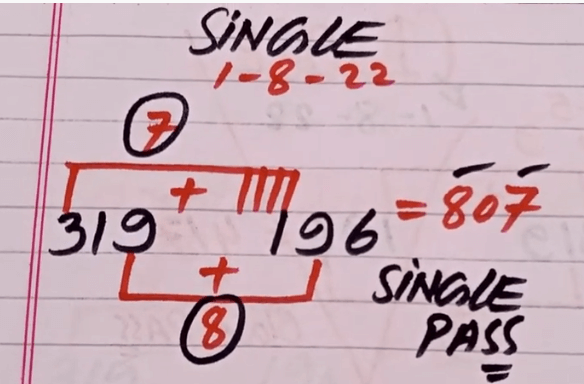 SINGLE
1-8-22
7
+
319 196 = 807
+
8
SINGLE
PASS